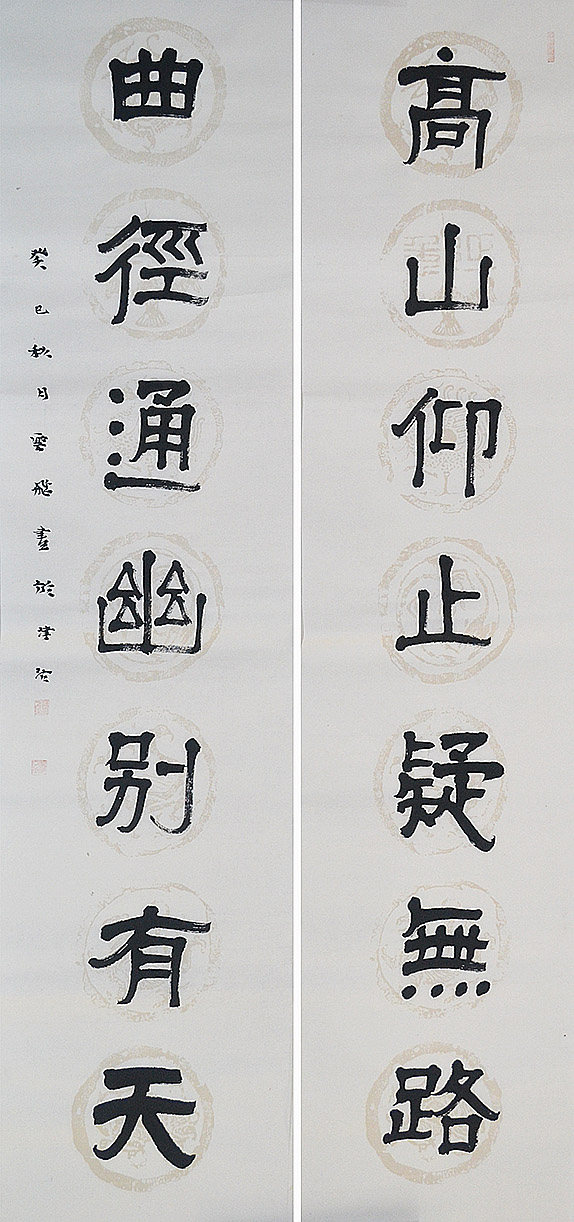 高山仰止疑無路
曲徑通幽别有天
癸巳秋月雲飛書於津沽